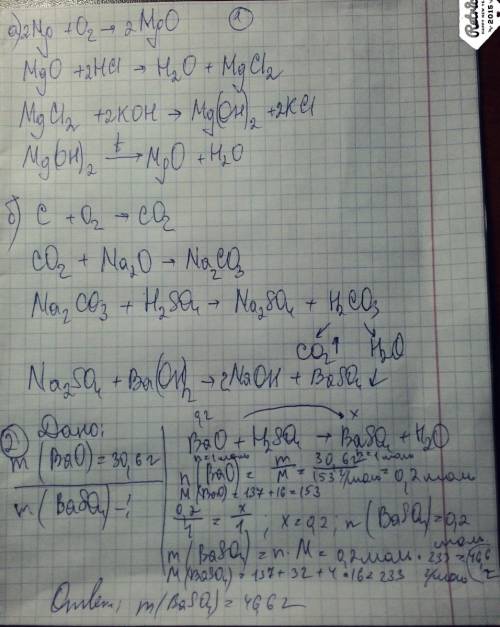 а) 2Mg + O₂ → 2MgO
MgO + 2HCl → H₂O + MgCl₂
MgCl₂ + 2KOH → Mg(OH)₂ + 2KCl
Mg(OH)₂ —t→ MgO + H₂O
б) C + O₂ → CO₂
CO₂ + Na₂O → Na₂CO₃
Na₂CO₃ + H₂SO₄ → Na₂SO₄ + H₂CO₃
CO₂↑ H₂O
Na₂SO₄ + Ba(OH)₂ → 2NaOH + BaSO₄↓
2) Дано:
m(BaO) = 30,6г
m(BaSO₄) - ?
0,2 x
BaO + H₂SO₄ → BaSO₄ + H₂O
n=1моль n=1моль
n(BaO) = m/M = 30,6г/153г/моль = 0,2 моль
M(BaO) = 137+16=153
0,2/1 = x/1, x=0,2; n(BaSO₄)=0,2
моль
m(BaSO₄) = n·M = 0,2моль · 233 г/моль = 46,6 г
M(BaSO₄) = 137 + 32 + 4·16 = 233
Ответ: m(BaSO₄) = 46,6г